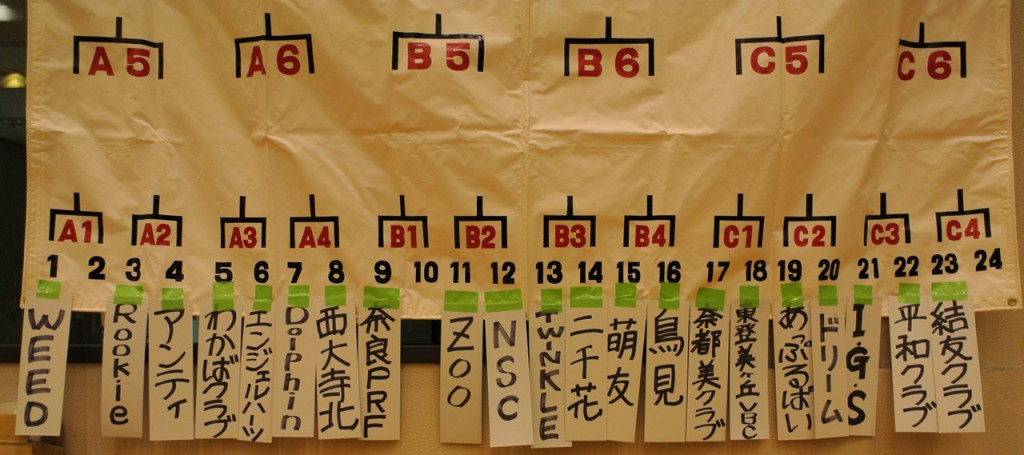 A5 A6 B5 B6 C5 C6
A1 A2 A3 A4 B1 B2 B3 B4 C1 C2 C3 C4
1 2 3 4 5 6 7 8 9 10 11 12 13 14 15 16 17 18 19 20 21 22 23 24
WEED
Rookie
アンティ
わかばクラブ
エンジェルハーツ
Dolphin
西大寺北
奈良PRF
ZOO
NSC
TWINKLE
二千花
萌友
鳥見
奈都美クラブ
東登美ヶ丘VBC
あっぷるぱい
ドリーム
I・G・S
平和クラブ
結友クラブ